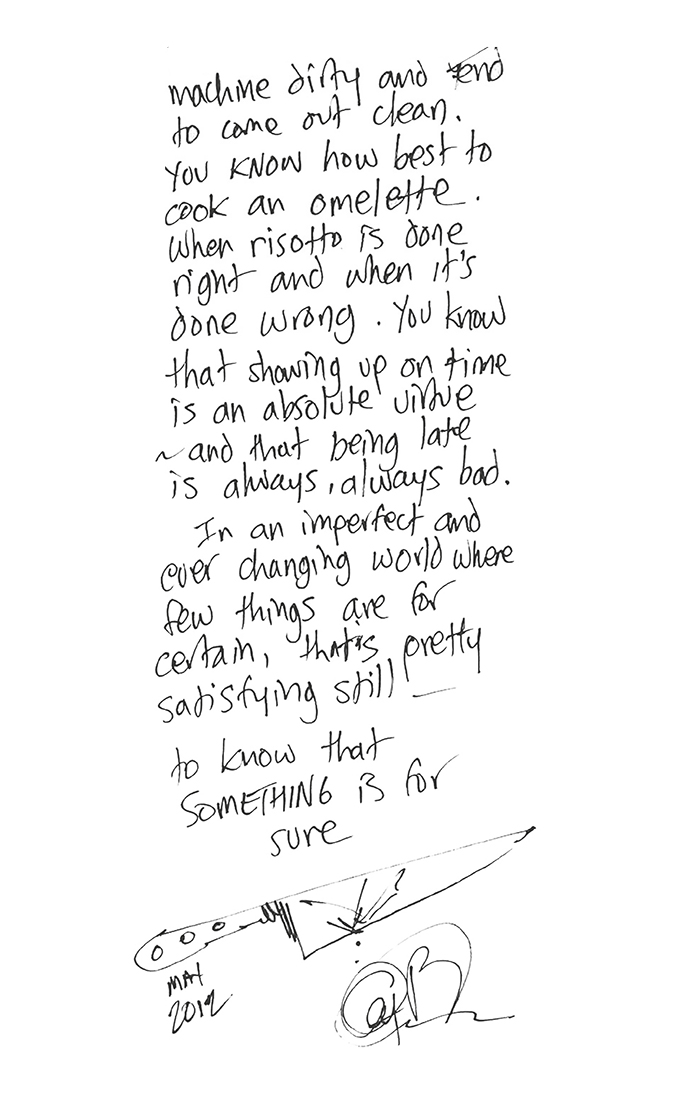 machine dirty and tend
to come out clean.
You KNOW how best to
cook an omelette.
When risotto is done
right and when it's
done wrong. You know
that showing up on time
is an absolute virtue
~ and that being late
is always, always bad.
In an imperfect and
ever changing world where
few things are for
certain, that's pretty
satisfying still —
to know that
SOMETHING is for
sure
MAY
2012